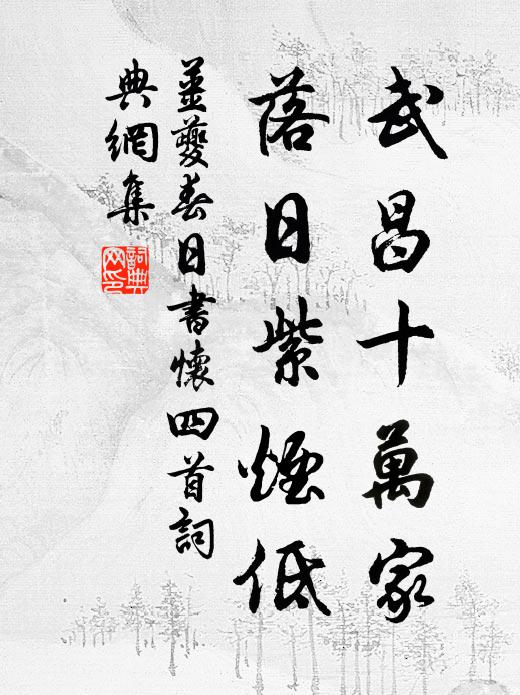 武昌十萬家
落日紫煙低
姜夔春日書懷四首詞
典網集
詞典
网印